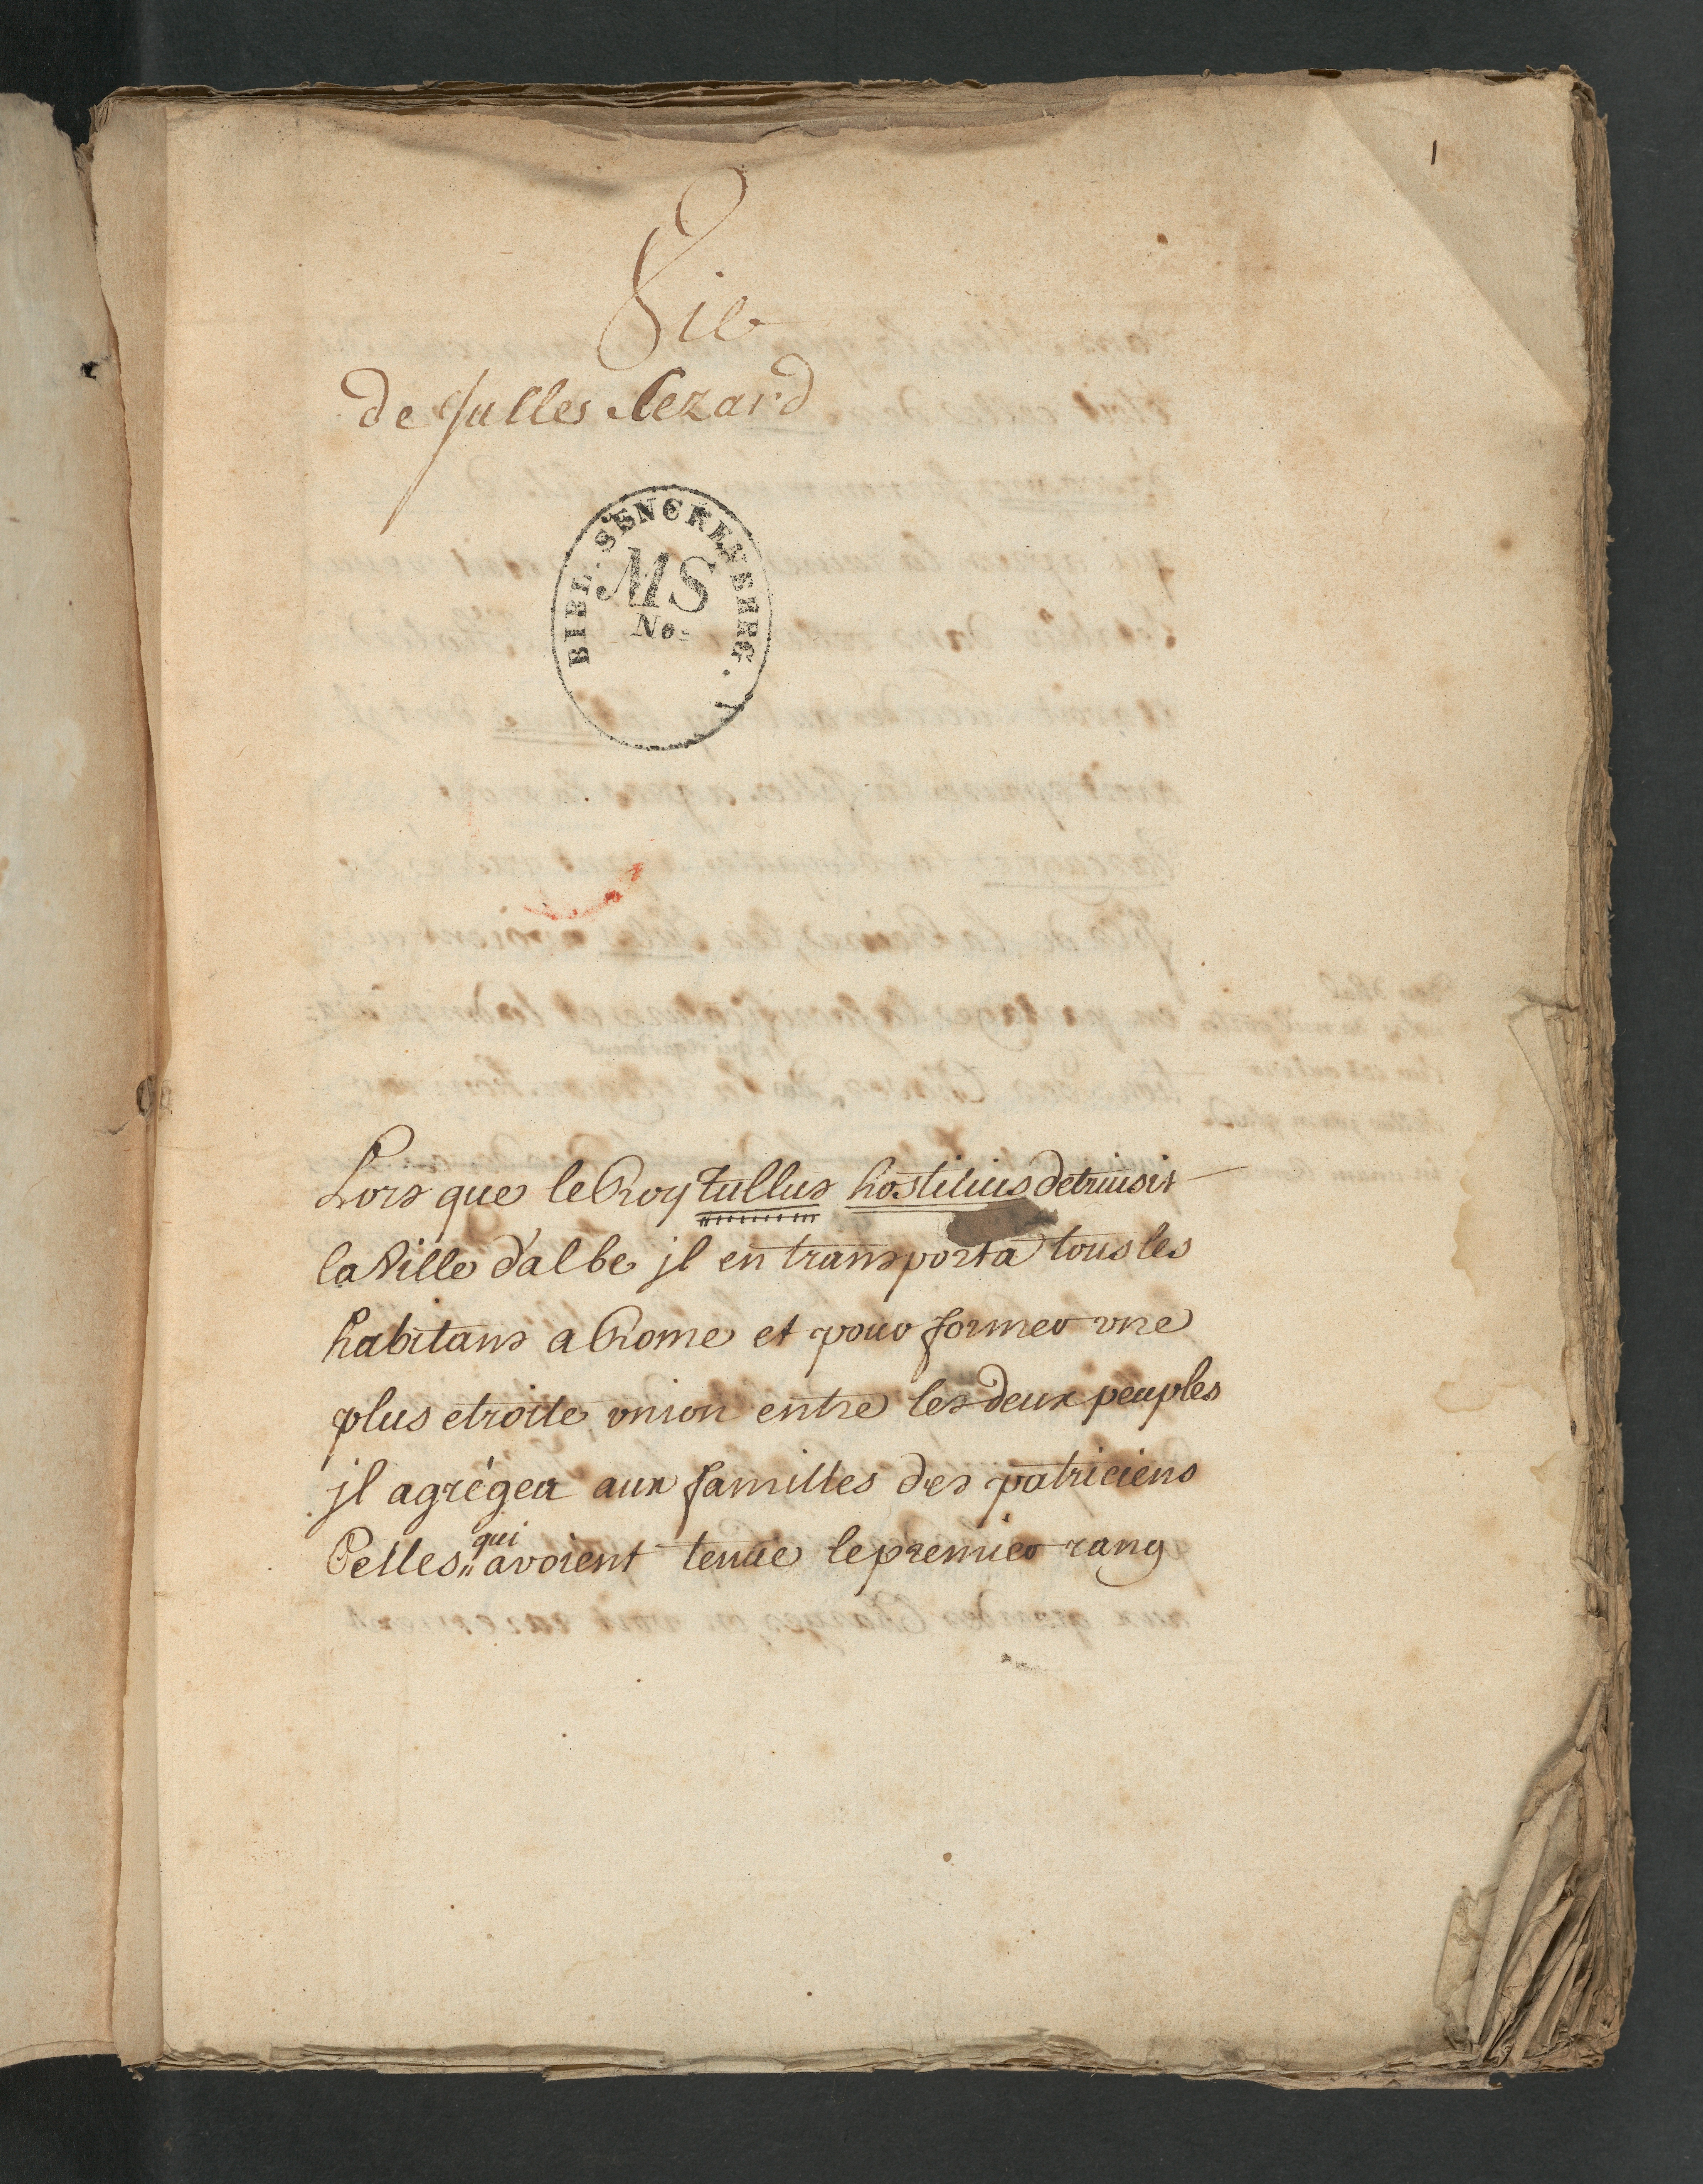 1
Vie
de Julles Cezard
BIBL. SENCKENBERG.
MS
No.
Lors que le Roy tullus hostilius detruisit
la Ville d'albe jl en transporta tous les
habitans a Rome et pour former vne
plus etroite vnion entre les deux peuples
jl agrégea aux familles des patriciens
Celles qui avoient tenüe le premier rang